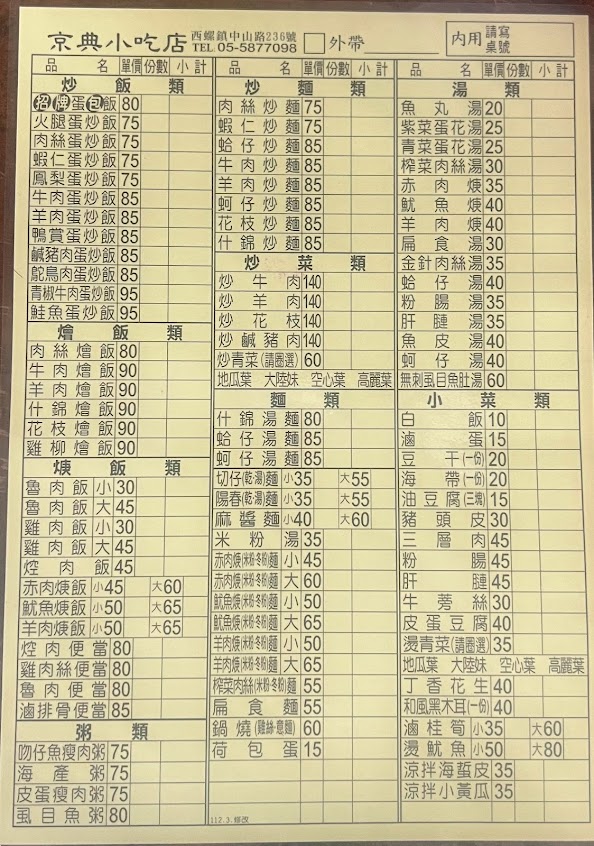 京典小吃店 西螺鎮中山路236號 TEL 05-5877098 外帶 內用 請寫桌號
品名 單價 份數 小計
炒飯類
招牌蛋包飯 80
火腿蛋炒飯 75
肉絲蛋炒飯 75
蝦仁蛋炒飯 75
鳳梨蛋炒飯 75
牛肉蛋炒飯 85
羊肉蛋炒飯 85
鴨賞蛋炒飯 85
鹹豬肉蛋炒飯 85
鴕鳥肉蛋炒飯 85
青椒牛肉蛋炒飯 95
鮭魚蛋炒飯 95
燴飯類
肉絲燴飯 80
牛肉燴飯 90
羊肉燴飯 90
什錦燴飯 90
花枝燴飯 90
雞柳燴飯 90
焿飯類
魯肉飯小 30
魯肉飯大 45
雞肉飯小 30
雞肉飯大 45
焢肉飯 45
赤肉焿飯 小45 大60
魷魚焿飯 小50 大65
羊肉焿飯 小50 大65
焢肉便當 80
雞肉絲便當 80
魯肉便當 80
滷排骨便當 85
粥類
吻仔魚瘦肉粥 75
海產粥 75
皮蛋瘦肉粥 75
虱目魚粥 80
品名 單價 份數 小計
炒麵類
肉絲炒麵 75
蝦仁炒麵 75
蛤仔炒麵 85
牛肉炒麵 85
羊肉炒麵 85
蚵仔炒麵 85
花枝炒麵 85
什錦炒麵 85
炒菜類
炒牛肉 140
炒羊肉 140
炒花枝 140
炒鹹豬肉 140
炒青菜(請圈選) 60
地瓜葉 大陸妹 空心葉 高麗葉
麵類
什錦湯麵 80
蛤仔湯麵 85
蚵仔湯麵 85
切仔(乾·湯)麵 小35 大55
陽春(乾·湯)麵 小35 大55
麻醬麵 小40 大60
米粉湯 35
赤肉焿(米粉·冬粉)麵小 45
赤肉焿(米粉·冬粉)麵大 60
魷魚焿(米粉·冬粉)麵小 50
魷魚焿(米粉·冬粉)麵大 65
羊肉焿(米粉·冬粉)麵小 50
羊肉焿(米粉·冬粉)麵大 65
榨菜肉絲(米粉·冬粉)麵 55
扁食麵 55
鍋燒(雞絲·意麵) 60
荷包蛋 15
112.3.修改
品名 單價 份數 小計
湯類
魚丸湯 20
紫菜蛋花湯 25
青菜蛋花湯 25
榨菜肉絲湯 30
赤肉焿 35
魷魚焿 40
羊肉焿 40
扁食湯 30
金針肉絲湯 35
蛤仔湯 40
粉腸湯 35
肝腱湯 35
魚皮湯 40
蚵仔湯 40
無刺虱目魚肚湯 60
小菜類
白飯 10
滷蛋 15
豆干(一份) 20
海帶(一份) 20
油豆腐(三塊) 15
豬頭皮 30
三層肉 45
粉腸 45
肝腱 45
牛蒡絲 30
皮蛋豆腐 40
燙青菜(請圈選) 35
地瓜葉 大陸妹 空心葉 高麗葉
丁香花生 40
和風黑木耳(一份) 40
滷桂筍 小35 大60
燙魷魚 小50 大80
涼拌海蜇皮 35
涼拌小黃瓜 35